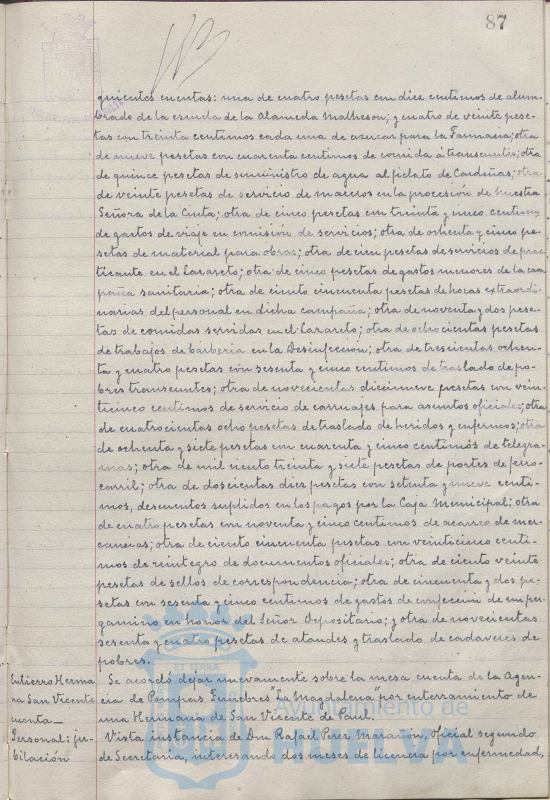 87
quientes cuentas: una de cuatro pesetas con diez centimos de alum-
brado de la escuela de la Alameda Matheson; y cuatro de veinte pese-
tas con treinta centimos cada una de azucar para la Farmacia; otra
de nueve pesetas con cuarenta centimos de comida á transeuntes; otra
de quince pesetas de suministro de agua al fielato de Cardeñas; otra
de veinte pesetas de servicio de maceros en la procesión de Nuestra
Señora de la Cinta; otra de cinco pesetas con treinta y cinco centimos
de gastos de viaje en comisión de servicios; otra de ochenta y cinco pe-
setas de material para obras; otra de cien pesetas de servicios de prac-
ticante en el Lazareto; otra de cinco pesetas de gastos menores de la cam
paña sanitaria; otra de ciento cincuenta pesetas de horas extraordi-
narias del personal en dicha campaña; otra de noventa y dos pese-
tas de comidas servidas en el Lazareto; otra de ochocientas pesetas
de trabajos de barbería en la Desinfección; otra de trescientas ochen-
ta y cuatro pesetas con sesenta y cinco centimos de traslado de po-
bres transeuntes; otra de novecientas diecinueve pesetas con vein-
ticinco centimos de servicio de carruajes para asuntos oficiales; otra
de cuatrocientas ocho pesetas de traslado de heridos y enfermos; otra
de ochenta y siete pesetas con cuarenta y cinco centimos de telegra-
mas; otra de mil ciento treinta y siete pesetas de portes de ferro-
carril; otra de doscientas diez pesetas con setenta y nueve centi-
mos, descuentos suplidos en los pagos por la Caja Municipal; otra
de cuatro pesetas con noventa y cinco centimos de acarreo de mer-
cancias; otra de ciento cincuenta pesetas con veinticinco centi-
mos de reintegro de documentos oficiales; otra de ciento veinte
pesetas de sellos de correspondencia; otra de cincuenta y dos pe-
setas con sesenta y cinco centimos de gastos de confección de un per-
gamino en honor del Señor Depositario; y otra de novecientas
sesenta y cuatro pesetas de ataudes y traslado de cadaveres de
pobres.
Entierro Herma
na San Vicente
cuenta_
Se acordó dejar nuevamente sobre la mesa cuenta de la Agen-
cia de Pompas Funebres "La Magdalena" por enterramiento de
una Hermana de San Vicente de Paul.
Personal: ju-
bilación
Vista instancia de Don Rafael Perez Marañon, oficial segundo
de Secretaria, interesando dos meses de licencia por enfermedad,
ET TERRÆ
Ayuntamiento de
HUELVA